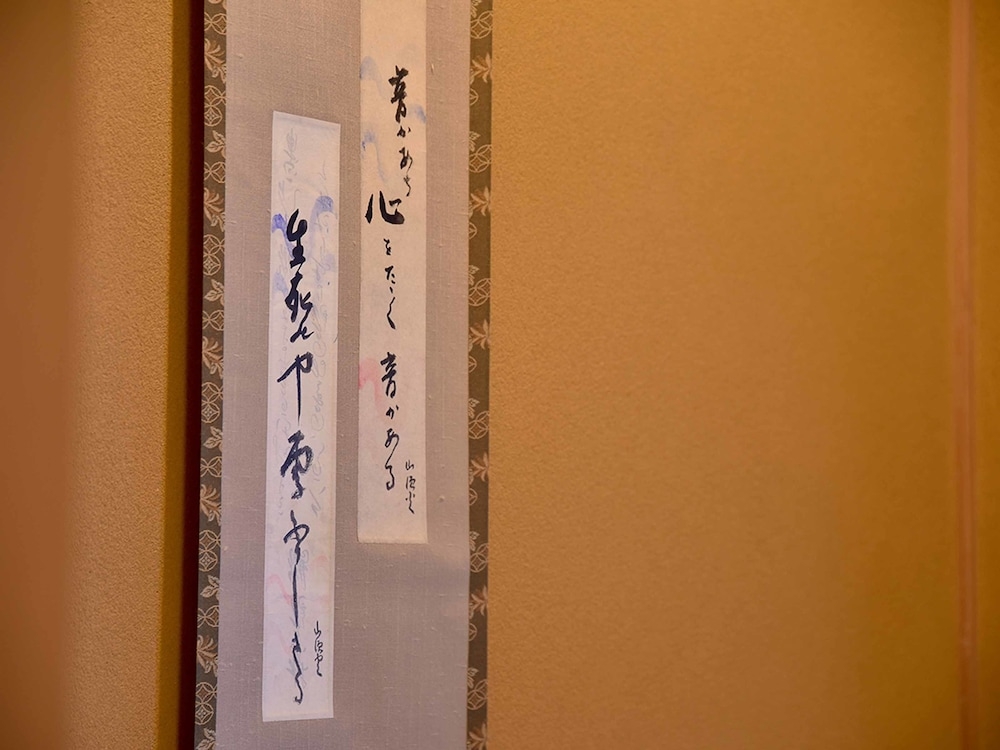 音かある心をたたく音かある
山頭火
生死の中雪ふりしきる
山頭火